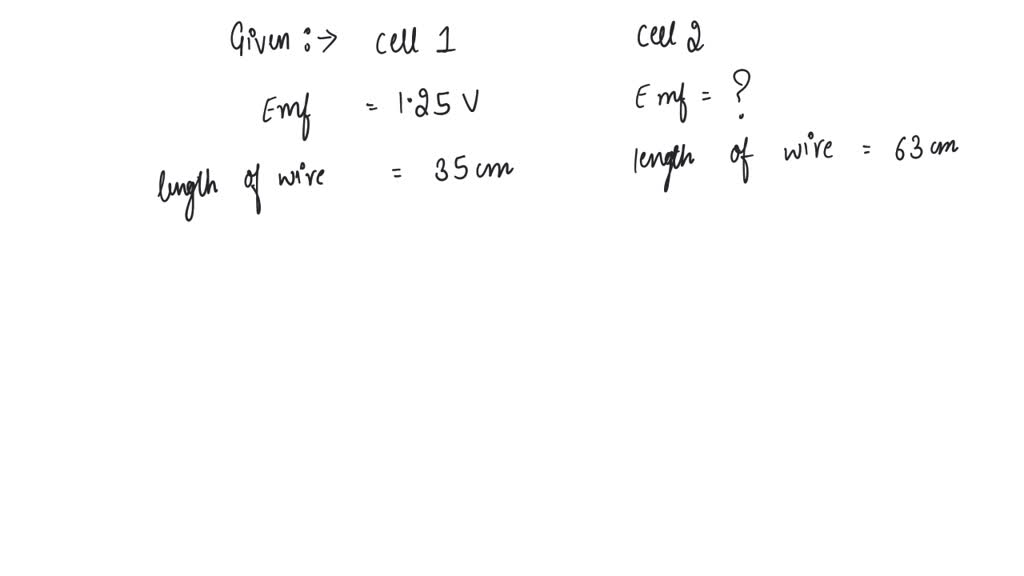 Given :→ cell 1
Emf = 1.25 V
length of wire = 35 cm
Cell 2
Emf = ?
length of wire = 63 cm